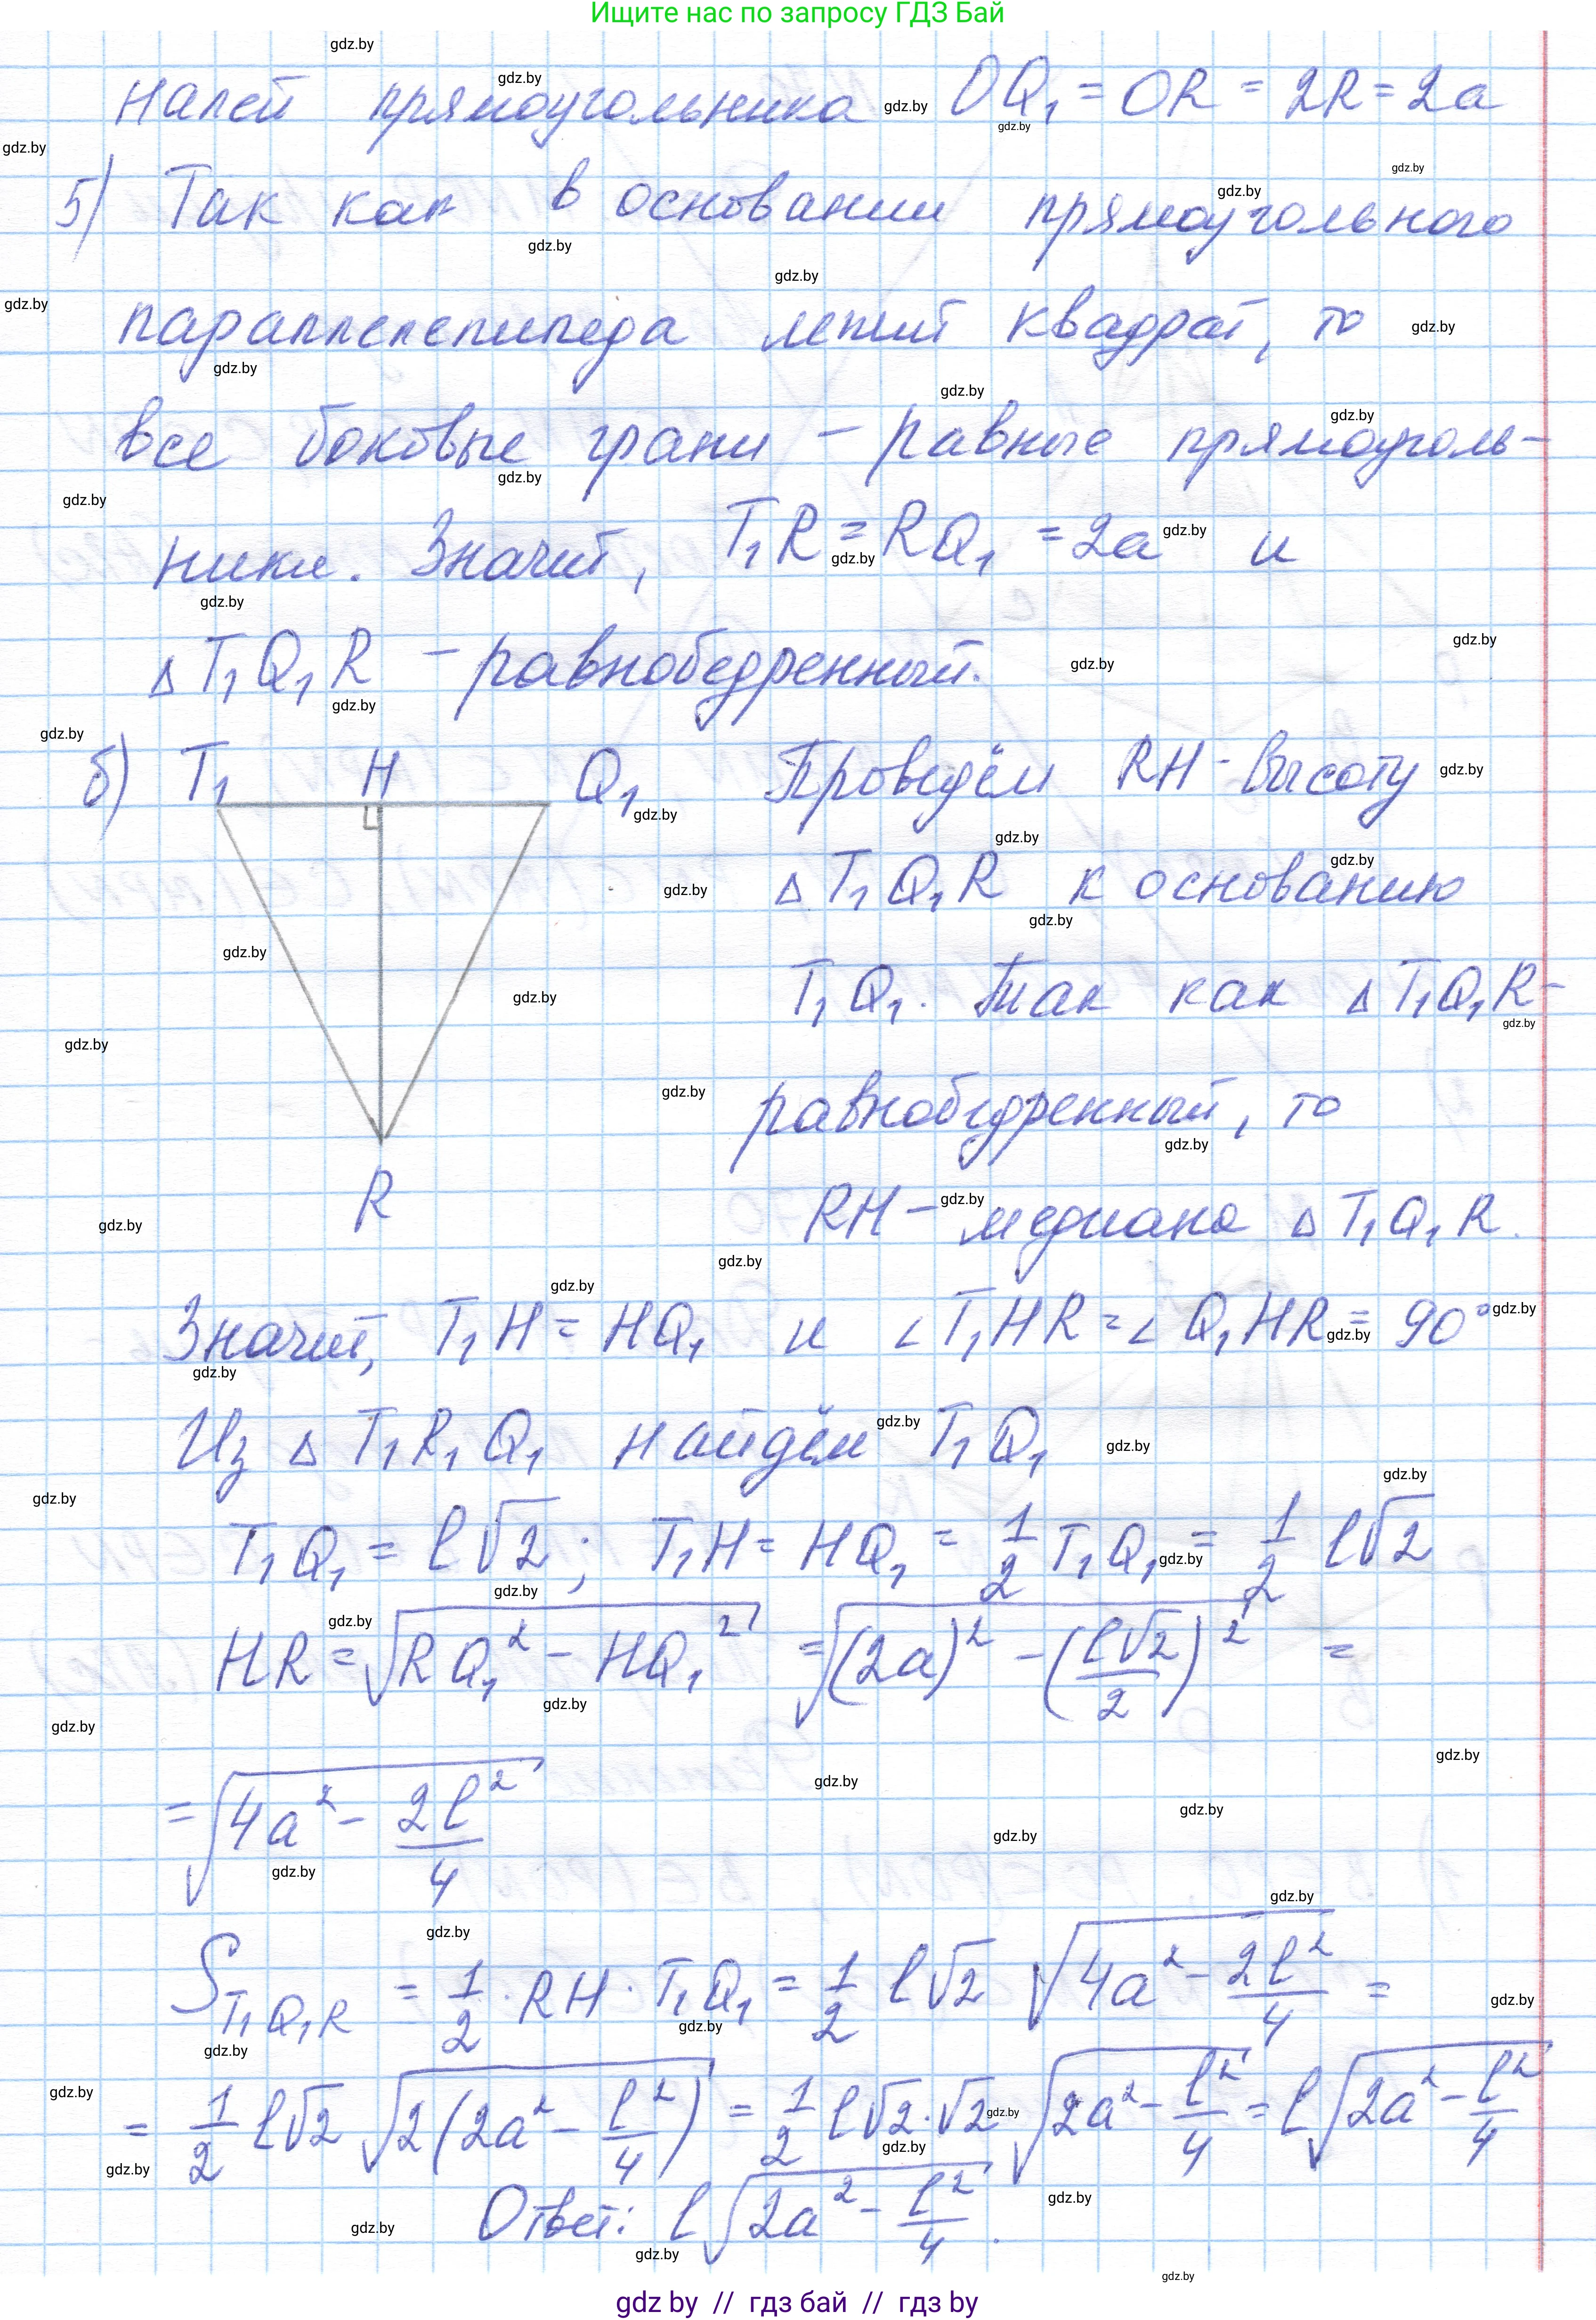 Ищите нас по запросу ГДЗ Бай
налей прямоугольника OQ₁ = OR = 2R = 2a
5) Так как в основании прямоугольного
параллелепипеда лежит квадрат, то
все боковые грани – равные прямоуголь-
ники. Значит, T₁R = RQ₁ = 2a и
Δ T₁Q₁R – равнобедренный.
б) T₁ H Q₁ Проведём RH – высоту
Δ T₁Q₁R к основанию
T₁Q₁. Так как Δ T₁Q₁R –
равнобедренный, то
RH – медиана Δ T₁Q₁R.
R
Значит, T₁H = HQ₁ и ∠ T₁HR = ∠ Q₁HR = 90°
Из Δ T₁R₁Q₁ найдём T₁Q₁
T₁Q₁ = l√2; T₁H = HQ₁ = 1/2 T₁Q₁ = 1/2 l√2
HR = √(RQ₁² – HQ₁²) = √((2a)² – (l√2/2)²) =
= √(4a² – 2l²/4)
S T₁Q₁R = 1/2 · RH · T₁Q₁ = 1/2 l√2 √(4a² – 2l²/4) =
= 1/2 l√2 √(2(2a² – l²/4)) = 1/2 l√2·√2 √(2a² – l²/4) = l√(2a² – l²/4)
Ответ: l√(2a² – l²/4).
gdz by // гдз бай // гдз by